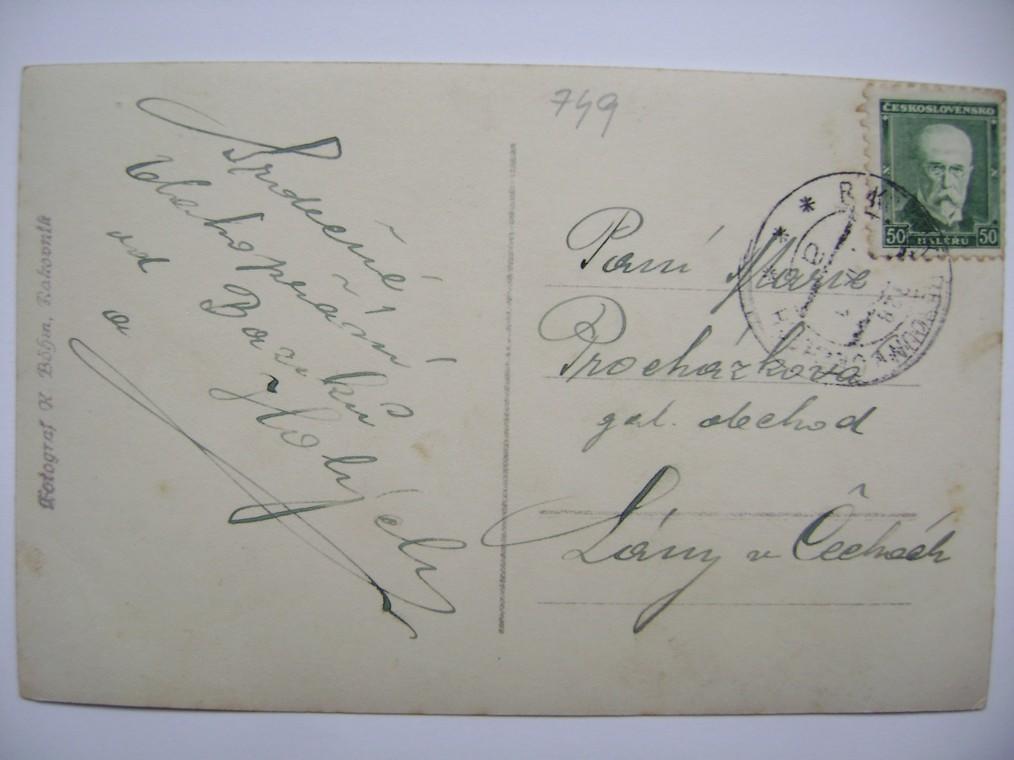 Fotograf K Böhm, Rakovník
Srdečné
blahopřání
od Bazíků
a Holých
749
ČESKOSLOVENSKO
50 HALÉŘŮ 50
Paní Marie
Procházková
gal. obchod
Lány v Čechách